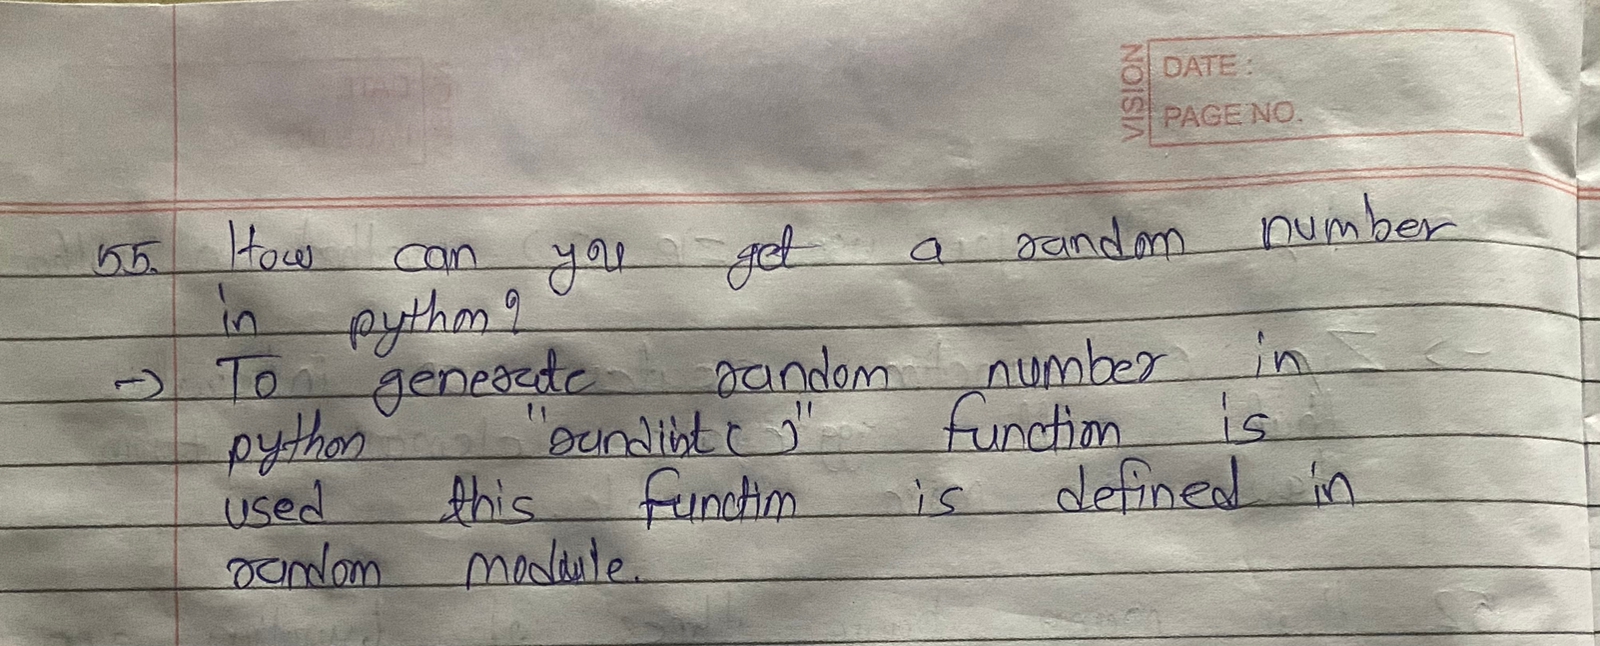 VISION
DATE :
PAGE NO.
55. How can you get a random number
in python?
→ To generate random number in
python "randint()" function is
used this function is defined in
random module.